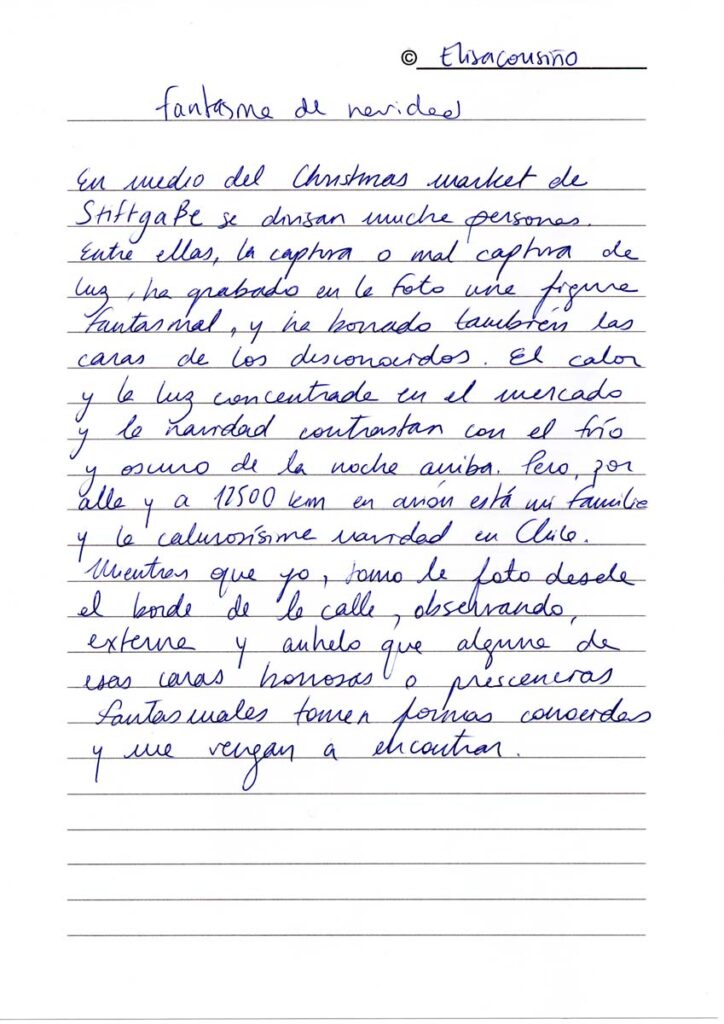 © Elisacousiño
fantasma de navidad
En medio del Christmas market de
Stiftgaße se divisan mucha personas.
Entre ellas, la captura o mal captura de
luz, ha grabado en la foto una figura
fantasmal, y ha borrado tambríen las
caras de los desconocidos. El calor
y la luz concentrada en el mercado
y la navidad contrastan con el frío
y oscuro de la noche arriba. Pero, por
alla y a 12500 km en avión está mi familia
y la calurosísima navidad en Chile.
Mientras que yo, tomo la foto desde
el borde de la calle, observando,
externa y anhelo que alguna de
esas caras borrosas o prescencias
fantasmales tomen formas conocidas
y me vengan a encontrar.